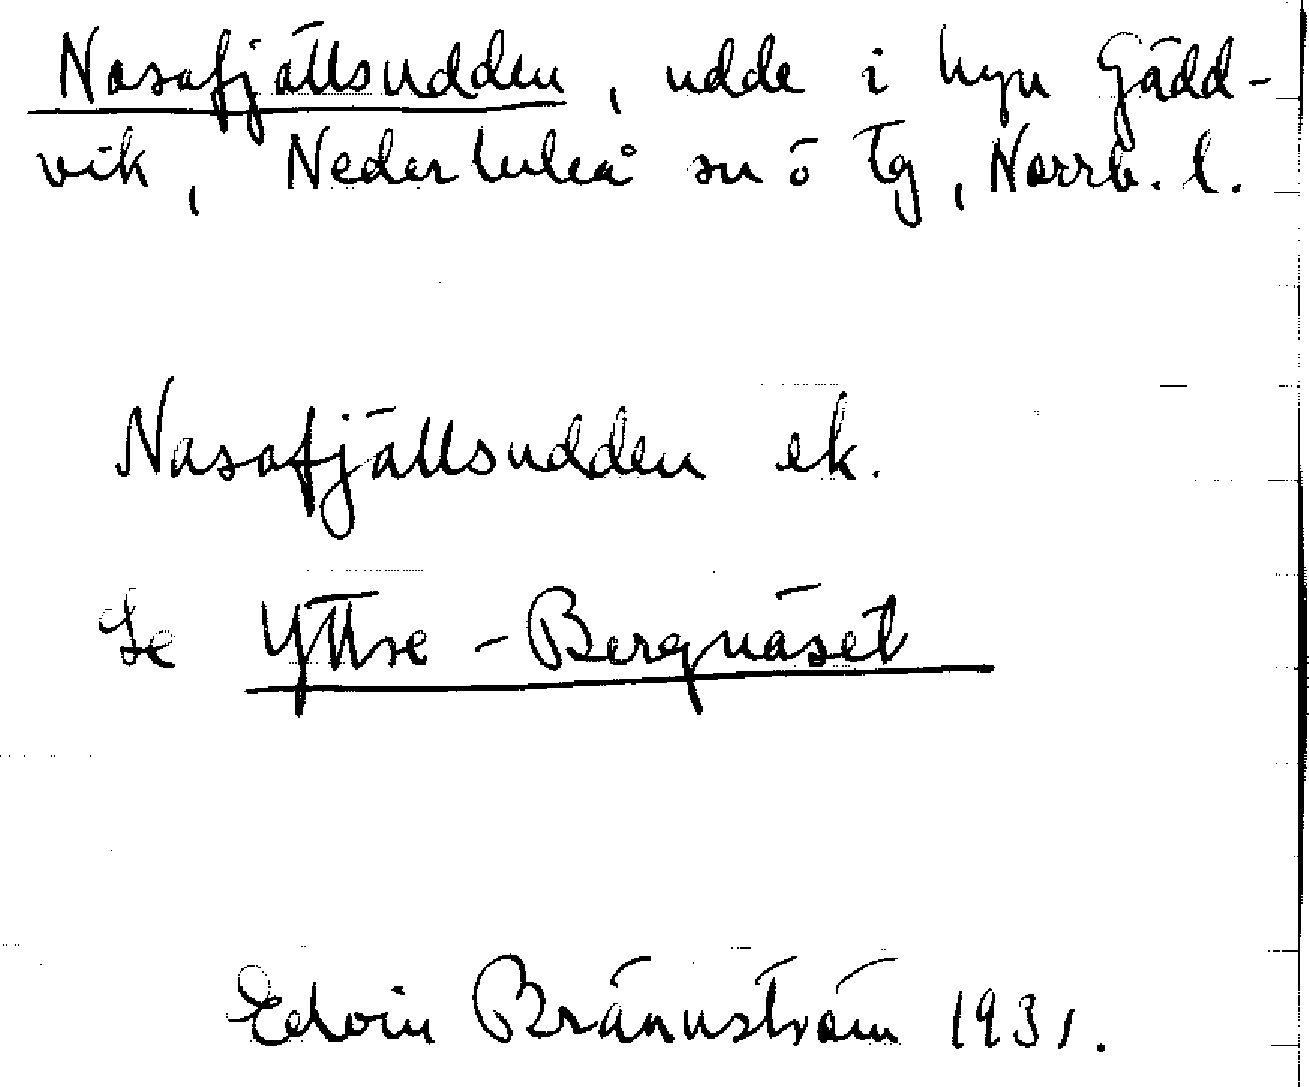 Nasafjällsudden, udde i byn Gädd-
vik, Nederluleå sn ö tg, Norrb. l.
Nasafjällsudden ek.
Se Yttre-Bergnäset
Edvin Brännström 1931.